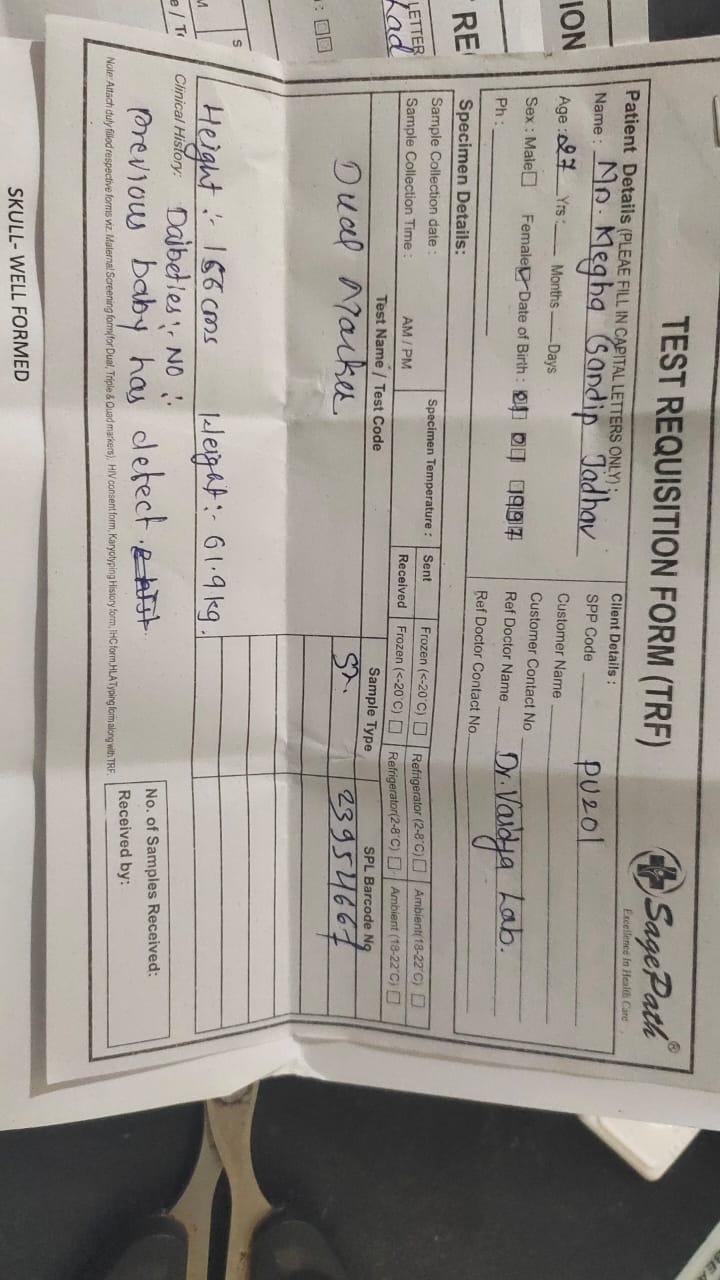 TEST REQUISITION FORM (TRF)
SagePath®
Excellence In Health Care
Patient Details (PLEAE FILL IN CAPITAL LETTERS ONLY) :
Name : Mr. Megha Sandip Jadhav
Age : 27 Yrs : Months Days
Sex : Male Female Date of Birth : 01 01 1997
Ph :
Client Details :
SPP Code PU201
Customer Name
Customer Contact No
Ref Doctor Name Dr. Vaidya Lab.
Ref Doctor Contact No
Specimen Details:
Sample Collection date :
Sample Collection Time : AM / PM
Specimen Temperature : Sent Frozen (<-20°C) Refrigerator (2-8°C) Ambient(18-22°C)
Received Frozen (<-20°C) Refrigerator(2-8°C) Ambient (18-22°C)
Test Name / Test Code Sample Type SPL Barcode No
Dual Marker Sr. 23954667
Height :- 156 cms Weight :- 61.9 kg.
Clinical History: Daibeties :- NO :
previous baby has defect.
No. of Samples Received:
Received by:
Note: Attach duly filled respective forms viz. Maternal Screening form(for Dual, Triple & Quad markers), HIV consent form, Karyotyping History form, IHC form,HLA Typing form along with TRF.
SKULL- WELL FORMED
ION
RE
LETTER